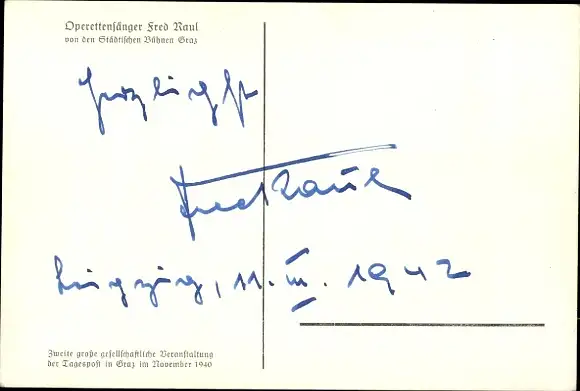 Operettensänger Fred Raul
von den Städtischen Bühnen Graz
Herzlichst
Fred Raul
11. III. 1942
Zweite große gesellschaftliche Veranstaltung
der Tagespost in Graz im November 1940